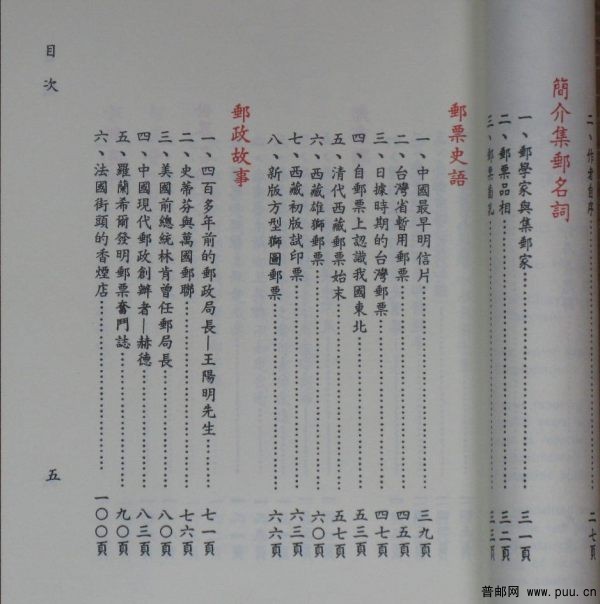 二、作者自序 二七頁
簡介集郵名詞
一、郵學家與集郵家 三一頁
二、郵票品相 三二頁
三、郵票齒孔 三三頁
郵票史語
一、中國最早明信片 三九頁
二、台灣省暫用郵票 四五頁
三、日據時期的台灣郵票 四七頁
四、自郵票上認識我國東北 五三頁
五、清代西藏郵票始末 五七頁
六、西藏雄獅郵票 六〇頁
七、西藏初版試印票 六三頁
八、新版方型獅圖郵票 六六頁
郵政故事
一、四百多年前的郵政局長—王陽明先生 七一頁
二、史蒂芬與萬國郵聯 七六頁
三、美國前總統林肯曾任郵局長 八〇頁
四、中國現代郵政創辦者—赫德 八三頁
五、羅蘭希爾發明郵票奮鬥誌 九〇頁
六、法國街頭的香煙店 一〇〇頁
目次
五
普邮网 www.puu.cn